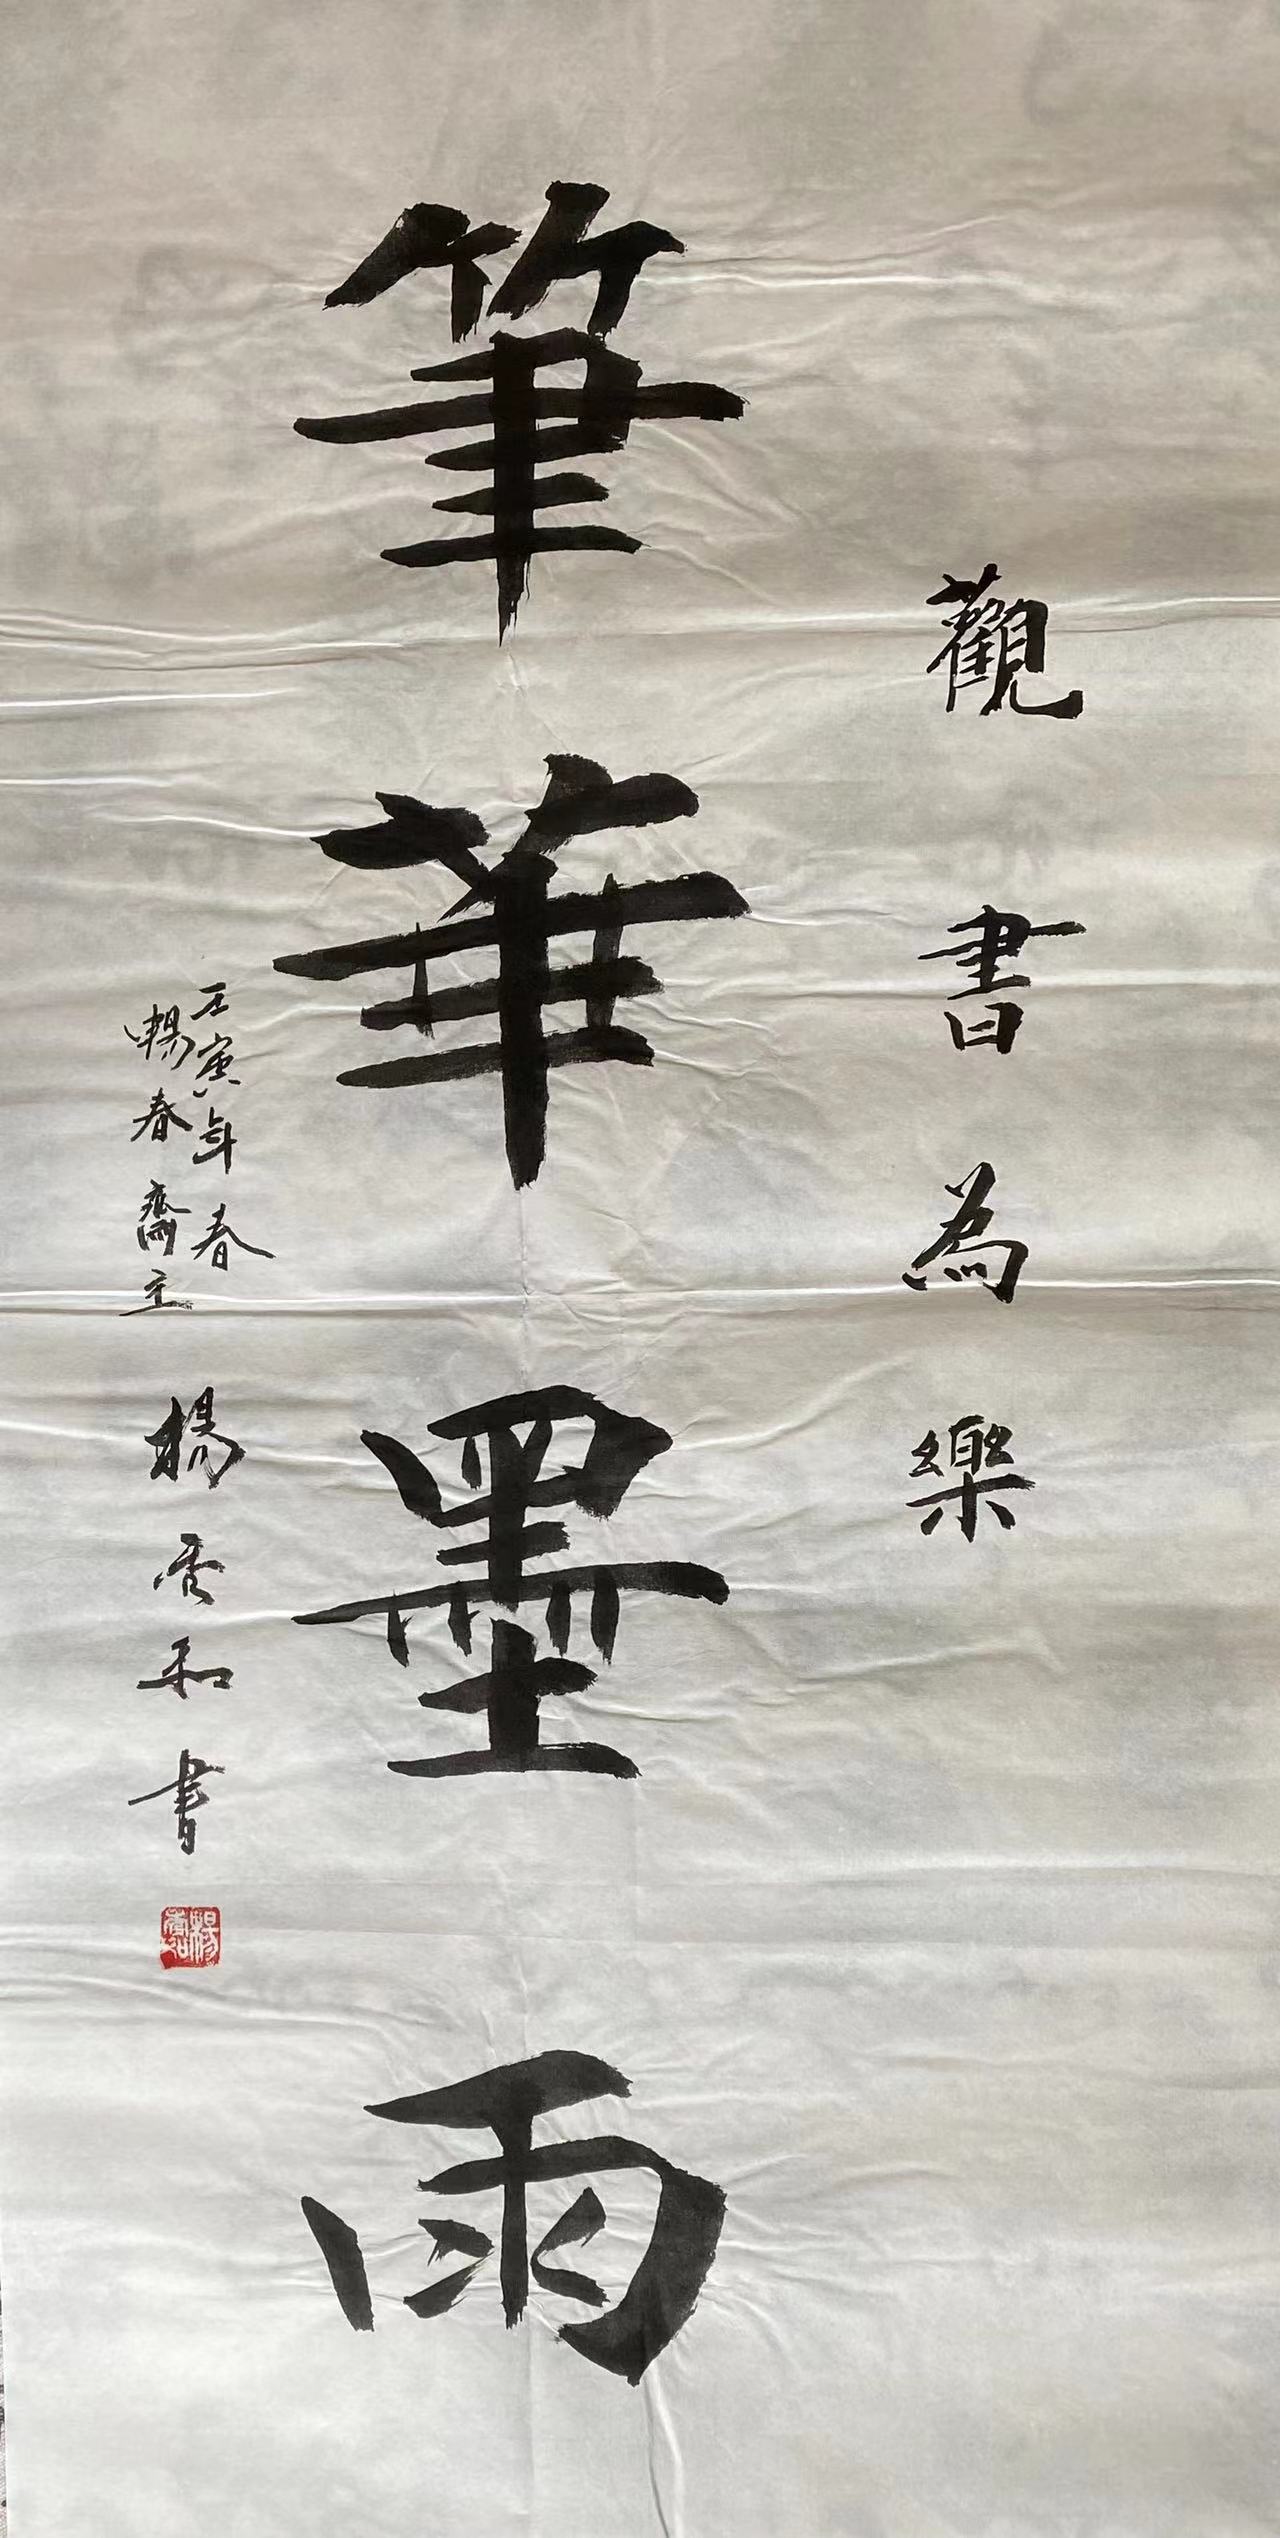 觀書為樂
筆華墨雨
壬寅年春
暢春齋主
楊雲和書